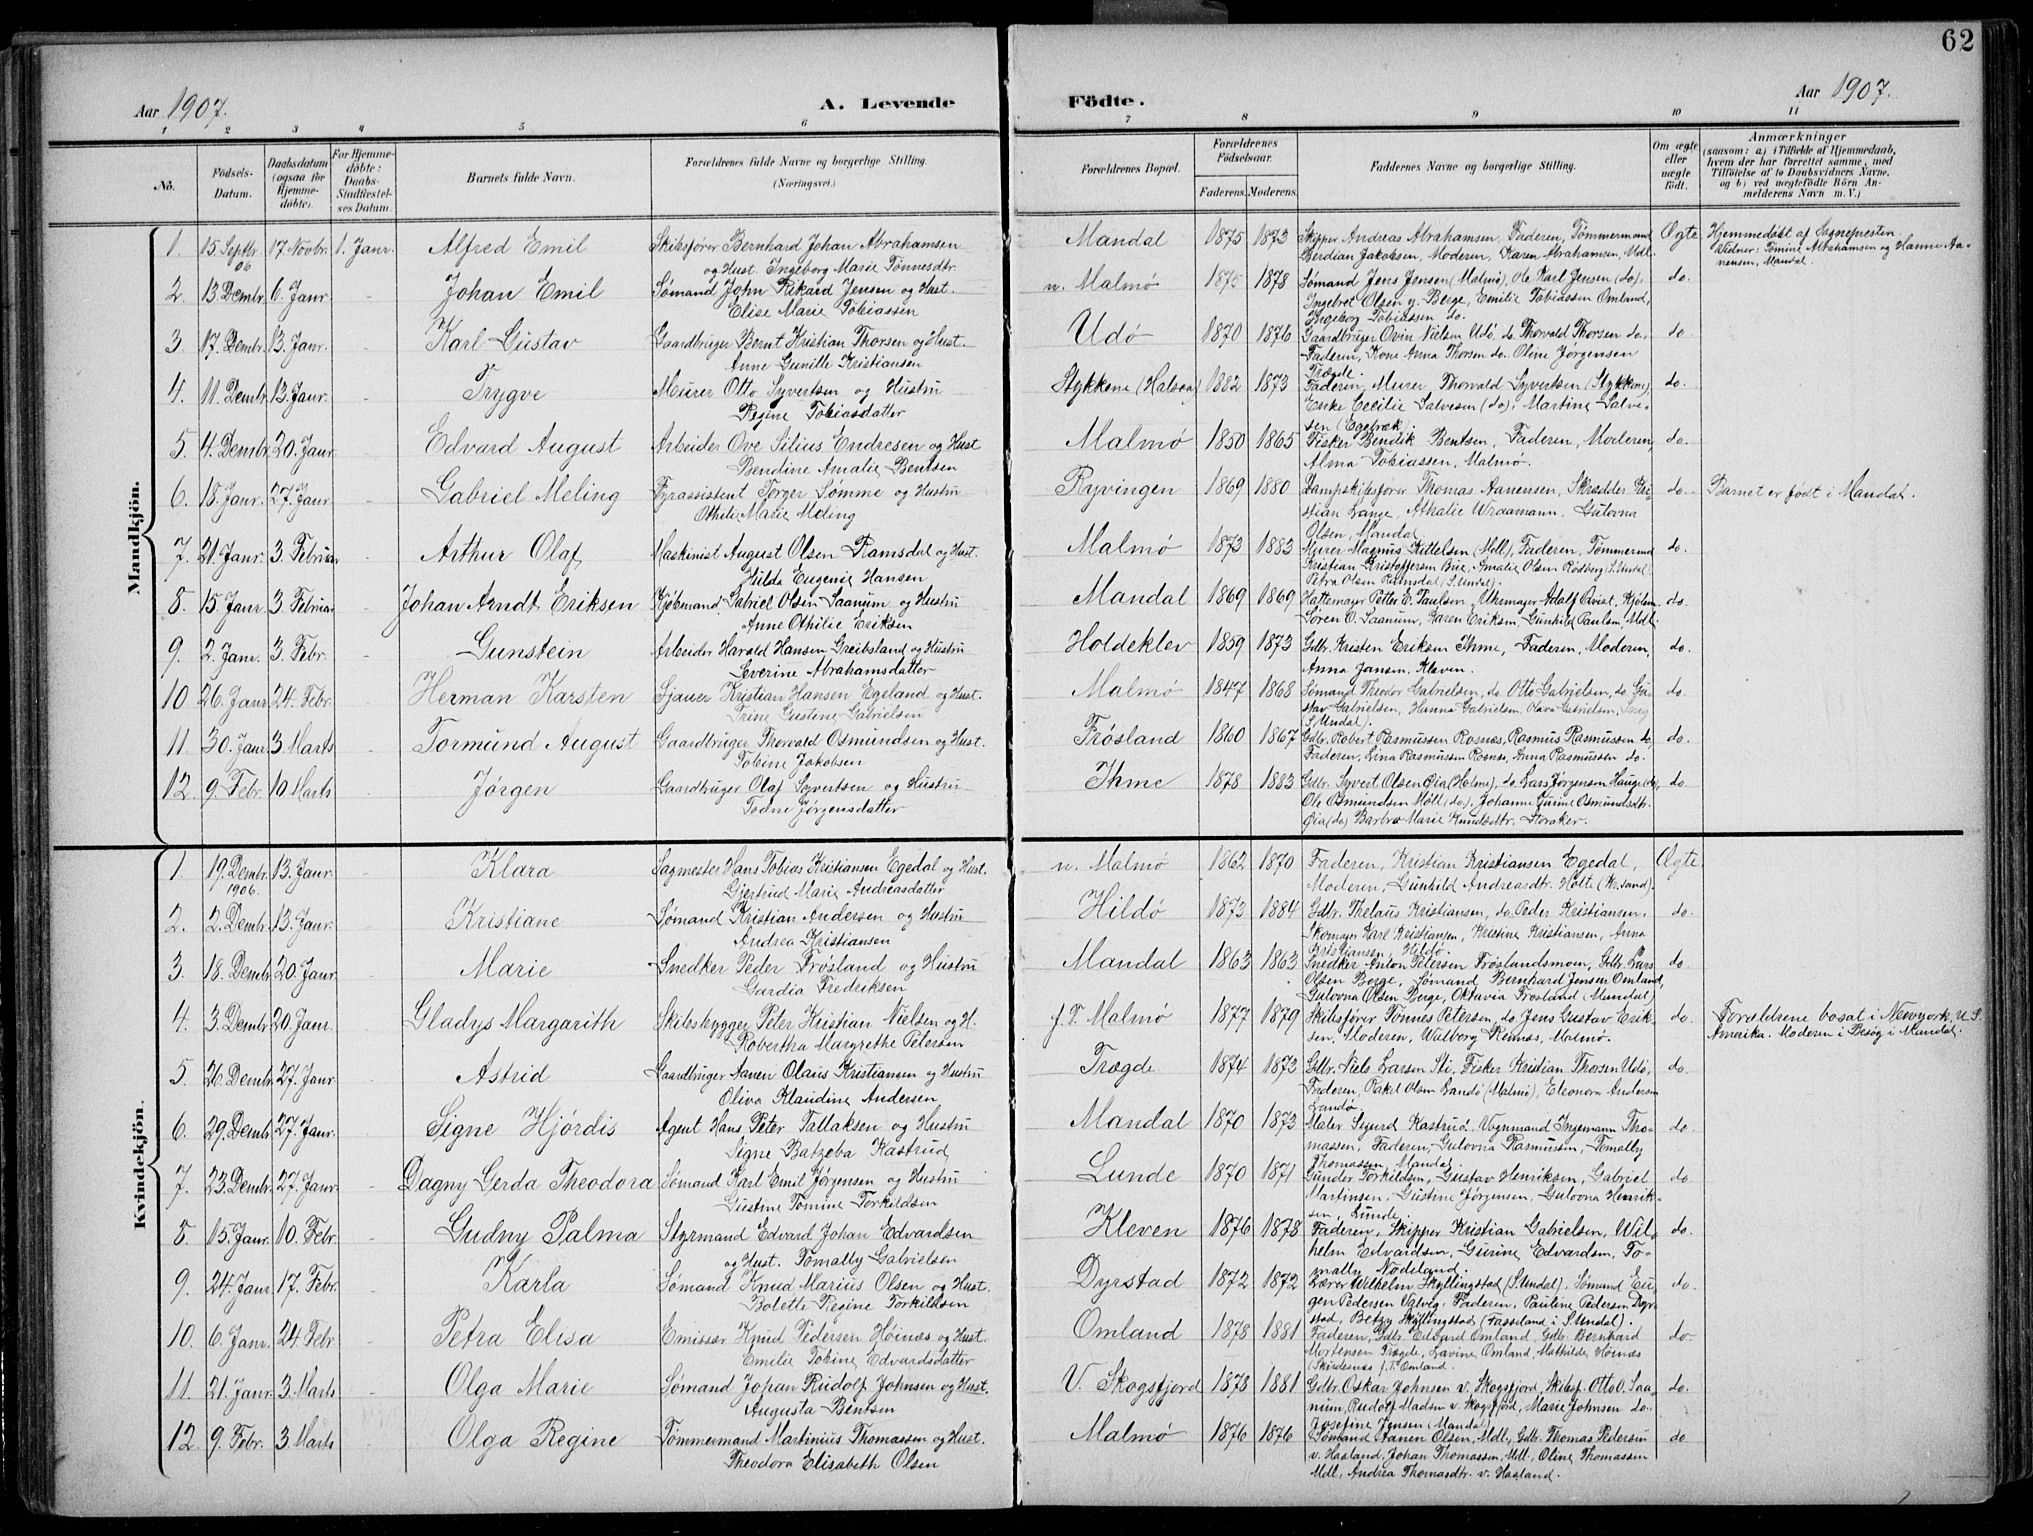 62
Aar 1907.
A. Levende
Födte.
Aar 1907.
1 2 3 4 5 6 7 8 9 10 11
No.
Födsels-Datum.
Daabsdatum (ogsaa for Hjemme-döbte).
For Hjemme-döbte: Daabs-Stadfæstel-ses Datum.
Barnets fulde Navn.
Forældrenes fulde Navne og borgerlige Stilling. (Næringsvei.)
Forældrenes Bopæl.
Forældrenes Födselsaar.
Faderens. Moderens.
Faddernes Navne og borgerlige Stilling.
Om ægte eller uægte födt.
Anmærkninger
(saasom: a) i Tilfælde af Hjemmedaab, hvem der har forrettet samme, med Tilföielse af to Daabsvidners Navne, og b) ved uægtefödte Börn An-melderens Navn m. V.)
Mandkjön.
1. 15 Septbr. 06 17 Novbr. 1. Janr. Alfred Emil Skibsfører Bernhard Johan Abrahamsen og Hust. Ingeborg Marie Tønnesdtr. Mandal 1875 1873 Skipper Andreas Abrahamsen, Faderen, Tømmermand Gerdian Jakobsen, Moderen, Karen Abrahamsen, Mdl. Ægte Hjemmedøbt af Sognepresten. Vidner: Tomine Abrahamsen og Hanne Aa-nensen, Mandal.
2. 13 Dembr. 6. Janr. - Johan Emil Sømand John Rikard Jensen og Hust. Elise Marie Tobiassen n. Malmø 1875 1878 Sømand Jens Jensen (Malmø), do Karl Jensen (do), Ingebret Olsen y. Berge, Emilie Tobiassen Omland, Ingeborg Tobiassen do. do.
3. 17. Dembr. 13. Janr. - Karl Gustav Gaardbruger Bernt Kristian Thorsen og Hust. Anne Gunille Kristiansen Udø 1870 1876 Gaardbruger Ovin Nielsen Udø, do Thorvald Thorsen do, Faderen, Kone Anna Thorsen do. Oline Jørgensen Trægde. do
4. 11. Dembr. 13. Janr. - Trygve Murer Otto Syvertsen og Hustru Regine Tobiasdatter Stykkene (Halsaa) 1882 1873 Faderen, Murer Thorvald Syvertsen (Stykkene), Enke Cecilie Salvesen (do), Martine Salve-sen (Egebræk). do.
5. 4. Dembr. 20. Janr. - Edvard August Arbeider Ove Silius Endresen og Hust. Bendine Amalie Bentsen Malmø 1850 1865 Fisker Bendik Bentsen, Faderen, Moderen, Alma Tobiassen, Malmø. do.
6. 18. Janr. 27. Janr. - Gabriel Meling Fyrassistent Torger Sømme og Hustru Othilie Marie Meling Ryvingen 1869 1880 Lampskibsfører Thomas Aanensen, Skrædder Kri-stian Lange, Athalie Wraamann, Gulovna Olsen, Mandal do. Barnet er født i Mandal.
7. 21. Janr. 3. Februar - Arthur Olaf Maskinist August Olsen Ramsdal og Hust. Hilda Eugenie Hansen Malmø 1873 1883 Murer Magnus Kittelsen (Mdl), Faderen, Tømmermd Kristian Kristoffersen Bue, Amalie Olsen Rødberg (S. Undal), Petra Olsen Ramsdal (S. Undal). do.
8. 15. Janr. 3. Februar - Johan Arndt Eriksen Kjøbmand Gabriel Olsen Saanum og Hustru Anne Othilie Eriksen Mandal 1869 1869 Hattemager Petter E. Paulsen, Uhrmager Adolf Qvist, Kjøbm. Søren O. Saanum, Karen Eriksen, Gunhild Paulsen, Mdl. do.
9. 2. Janr. 3. Febr. Gunstein Arbeider Harald Hansen Greibsland og Hustru Severine Abrahamsdatter Holdeklev 1859 1873 Gdbr. Kristen Eriksen Ihme, Faderen, Moderen, Anna Jansen, Kleven. do.
10 26. Janr. 24. Febr. - Herman Karsten Sjauer Kristian Hansen Egeland og Hust. Trine Gustine Gabrielsen Malmø 1847 1868 Sømand Theodor Gabrielsen, do Otto Gabrielsen, do Gu-stav Gabrielsen, Hanna Gabrielsen, Olava Gabrielsen, S. Undal). do.
11. 30. Janr. 3 Marts - Tormund August Gaardbruger Thorvald Osmundsen og Hust. Tobine Jakobsen Frøsland 1860 1867 Gdbr. Robert Rasmussen Rosnæs, Rasmus Rasmussen do, Faderen, Lina Rasmussen Rosnæs, Anna Rasmussen do. do.
12. 9. Febr. 10 Marts - Jørgen Gaardbruger Olaf Syvertsen og Hustru Todne Jørgensdatter Ihme 1878 1883 Gdbr. Syvert Olsen Øia (Holme), do. Lars Jørgensen Hauge (do), Ole Osmundsen Møll (do), Johanne Gurine Osmundsdtr. Øia (do) Barbro Marie Knudsdtr. Storaker. do
Kvindekjön.
1. 19. Dembr. 1906. 13. Janr. Klara Sagmester Hans Tobias Kristiansen Egedal og Hust. Gjertrud Marie Andreasdatter n. Malmø 1862 1870 Faderen, Kristian Kristiansen Egedal, Moderen, Gunhild Andreasdtr. Holte (Kr.sand). Ægte
2. 2. Dembr. 13. Janr. Kristiane Sømand Kristian Andersen og Hustru Andrea Kristiansen Hildø 1873 1884 Gdbr. Thelaus Kristiansen, do. Peder Kristiansen. Skomager Karl Kristiansen, Kristine Kristiansen, Anna Kristiansen, Hildø. do.
3. 18. Dembr. 20. Janr. - Marie Snedker Peder Frøsland og Hustru Gardia Fredriksen Mandal 1863 1863 Snedker Anton Petersen Frøslandsmoen, Gdbr. Lars Olsen Berge, Sømand Bernhard Jensen Omland, Gulovna Olsen Berge, Oktavia Frøsland (Mandal) do
4. 3. Dembr. 20. Janr. - Gladys Margarith Skibsbygger Peter Kristian Nielsen og H. Robertha Margrethe Petersen f. T. Malmø 1877 1879 Skibsfører Tønnes Petersen, do Jens Gustav Erik-sen, Moderen, Walborg Reinæs, Malmø. do. Forældrene bosat i Newyork, U. S. Amerika. Moderen i Besøg i Mandal.
5. 26. Dembr. 27. Janr. - Astrid Gaardbruger Aanen Olaus Kristiansen og Hustru Oliva Klaudine Andersen Trægde 1874 1873 Gdbr. Niels Larsen Sti, Fisker Kristian Thorsen Udø, Faderen, Rakel Olsen Landø (Malmø), Eleonora Andersen Landø. do
6. 29. Dembr. 27. Janr. - Signe Hjørdis Agent Hans Peter Tallaksen og Hustru Signe Batzeba Kastrud Mandal 1870 1873 Maler Sigurd Kastrud, Vognmand Ingemann Tho-massen, Faderen, Gulovna Rasmussen, Tomally Thomassen, Mandal. do.
7. 23. Dembr. 27. Janr. - Dagny Gerda Theodora Sømand Karl Emil Jørgensen og Hustru Gustine Tomine Torkildsen Lunde 1870 1871 Gunder Torkildsen, Gustav Henriksen, Gabriel Martinsen, Gustine Jørgensen, Gulovna Henrik-sen, Lunde. do
8. 15. Janr. 10. Febr. - Gudny Palma Styrmand Edvard Johan Edvardsen og Hust. Tomally Gabrielsen Kleven 1876 1878 Faderen, Skipper Kristian Gabrielsen, Wil-helm Edvardsen, Gurine Edvardsen, To-mally Nodeland. do.
9. 24. Janr. 17. Febr. - Karla Sømand Knud Marius Olsen og Hust. Bolette Regine Torkildsen Dyrstad 1872 1872 Lærer Wilhelm Skyllingstad (S. Undal). Sømand Eu-gen Pedersen Valvig, Faderen, Pauline Pedersen Dyr-stad, Betzy Skyllingstad (Fasseland i S. Undal). do.
10. 6. Janr. 24 Febr. - Petra Elisa Emissær Knud Pedersen Høinæs og Hust. Emilie Tobine Edvardsdatter Omland 1878 1881 Faderen, Gdbr. Edvard Omland, Gdbr. Bernhard Mortensen Trægde, Lavine Omland, Mathilde Høinæs (Skirdesnæs f. T. Omland. do-
11. 21. Janr. 3. Marts - Olga Marie Sømand Johan Rudolf Johnsen og Hust. Augusta Bentsen V. Skogsfjord 1873 1881 Gdbr. Oskar Johnsen v. Skogsfjord, Skibsf. Otto O. Saa-num, Rudolf Madsen v. Skogsfjord, Marie Johnsen do. Josefine Jensen (Mandal) do.
12. 9. Febr. 3. Marts - Olga Regine Tømmermand Martinius Thomassen og Hust. Theodora Elisabeth Olsen Malmø 1876 1876 Sømand Aanen Olsen, Mdl, Gdbr. Thomas Pedersen v. Hasland, Johan Thomassen, Mdl., Oline Thomassen Mdl, Andrea Thomasdtr. v. Hasland. do